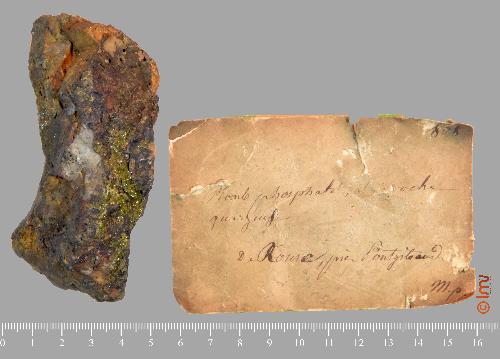 828
Plomb phosphaté, roche
quarzeuse
de Roure, près Pontgibaud
M.p.
© lmv
0 1 2 3 4 5 6 7 8 9 10 11 12 13 14 15 16